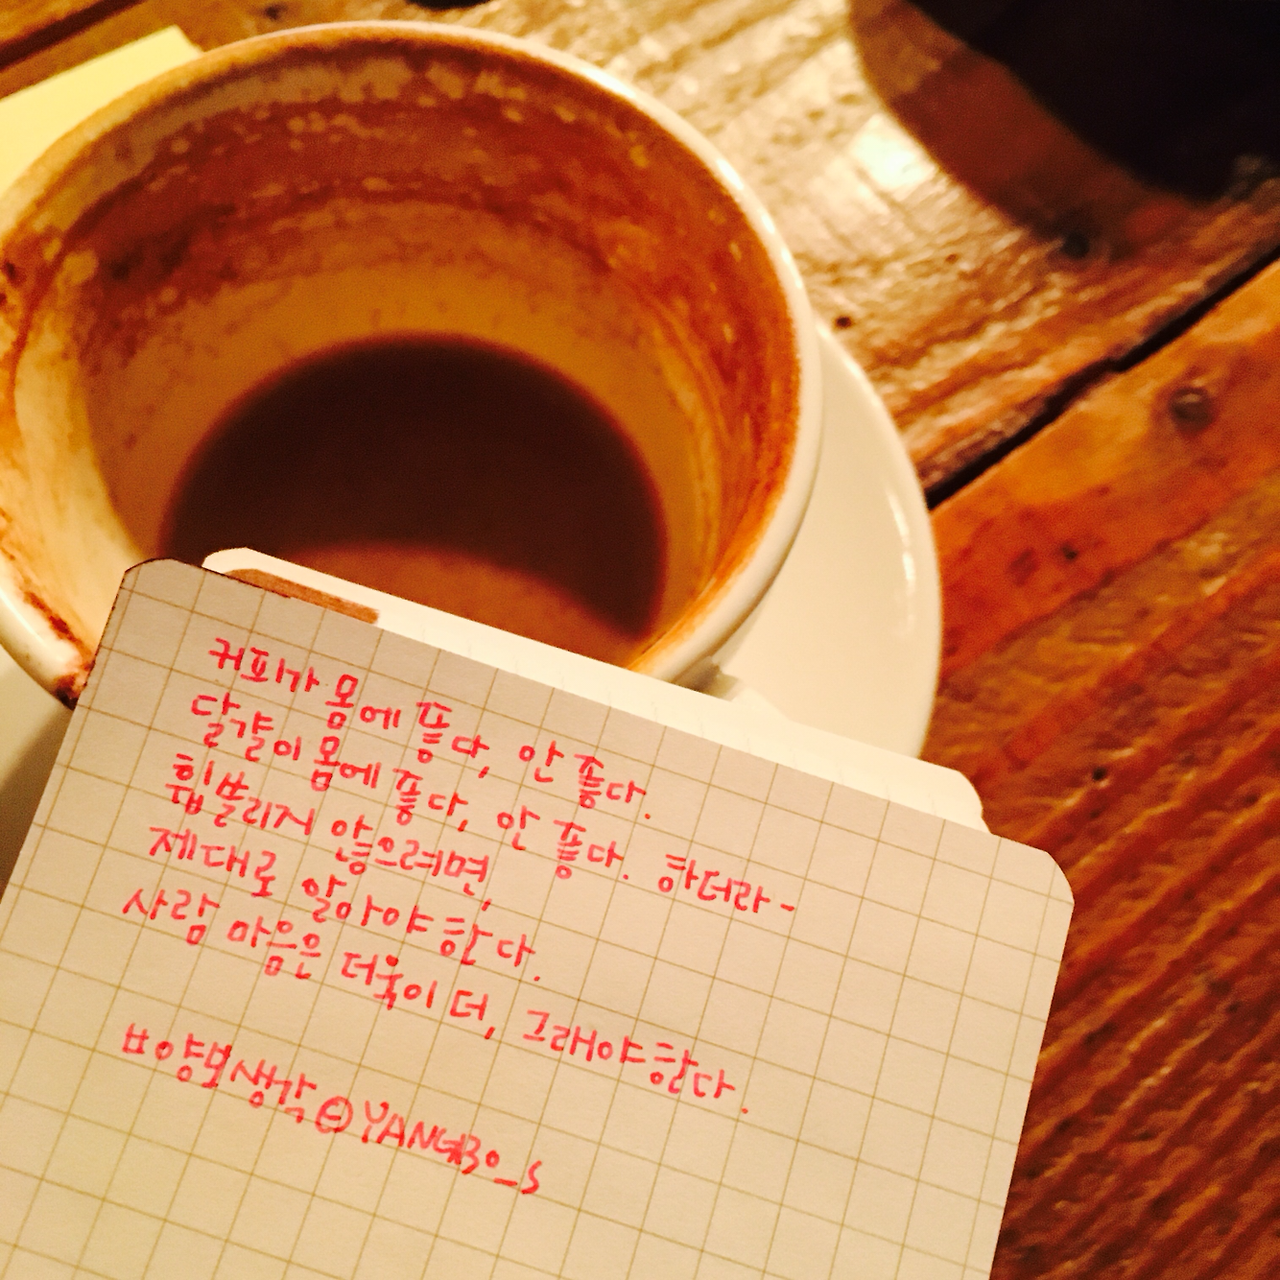 커피가 몸에 좋다, 안 좋다.
달걀이 몸에 좋다, 안 좋다. 하더라-
휩쓸리지 않으려면,
제대로 알아야 한다.
사람 마음은 더욱이 더, 그래야 한다.
#양보생각 @YANGBO_S